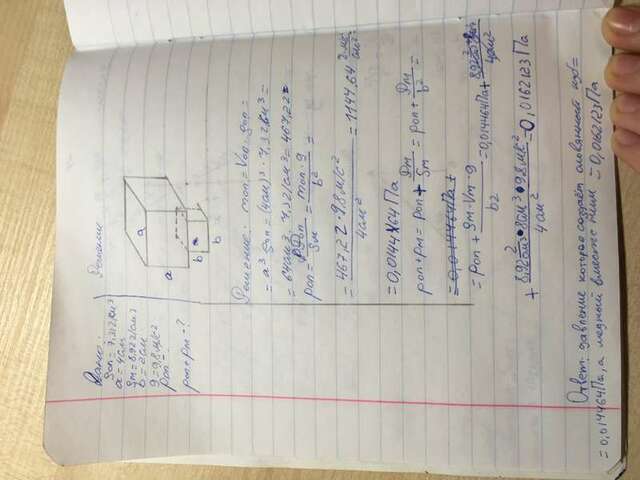 Дано:
ρол=7,3г/см³
a=4см
ρм=8,92г/см³
b=2см
g=9,8м/с²
pол=
pол+pм=?
Решение
a
a
b
b
Решение: mол=Vол·ρол=
=a³·ρол=(4см)³·7,3г/см³=
=64см³·7,3г/см³=467,2г=
pол= = mол·g / b² =
= 467,2г·9,8м/с² / 4см² =1144,64
=0,014464Па
pол+pм=pол+ / Sм =pол+ / b² =
=pол+ ρм·Vм·g / b² =0,014464Па+
+ 8,92г/см³·8см³·9,8м/с² / 4см² =0,0162123Па
Ответ: давление которое создаёт оловянный куб=
=0,014464Па, а медный вместе с ним =0,062123Па